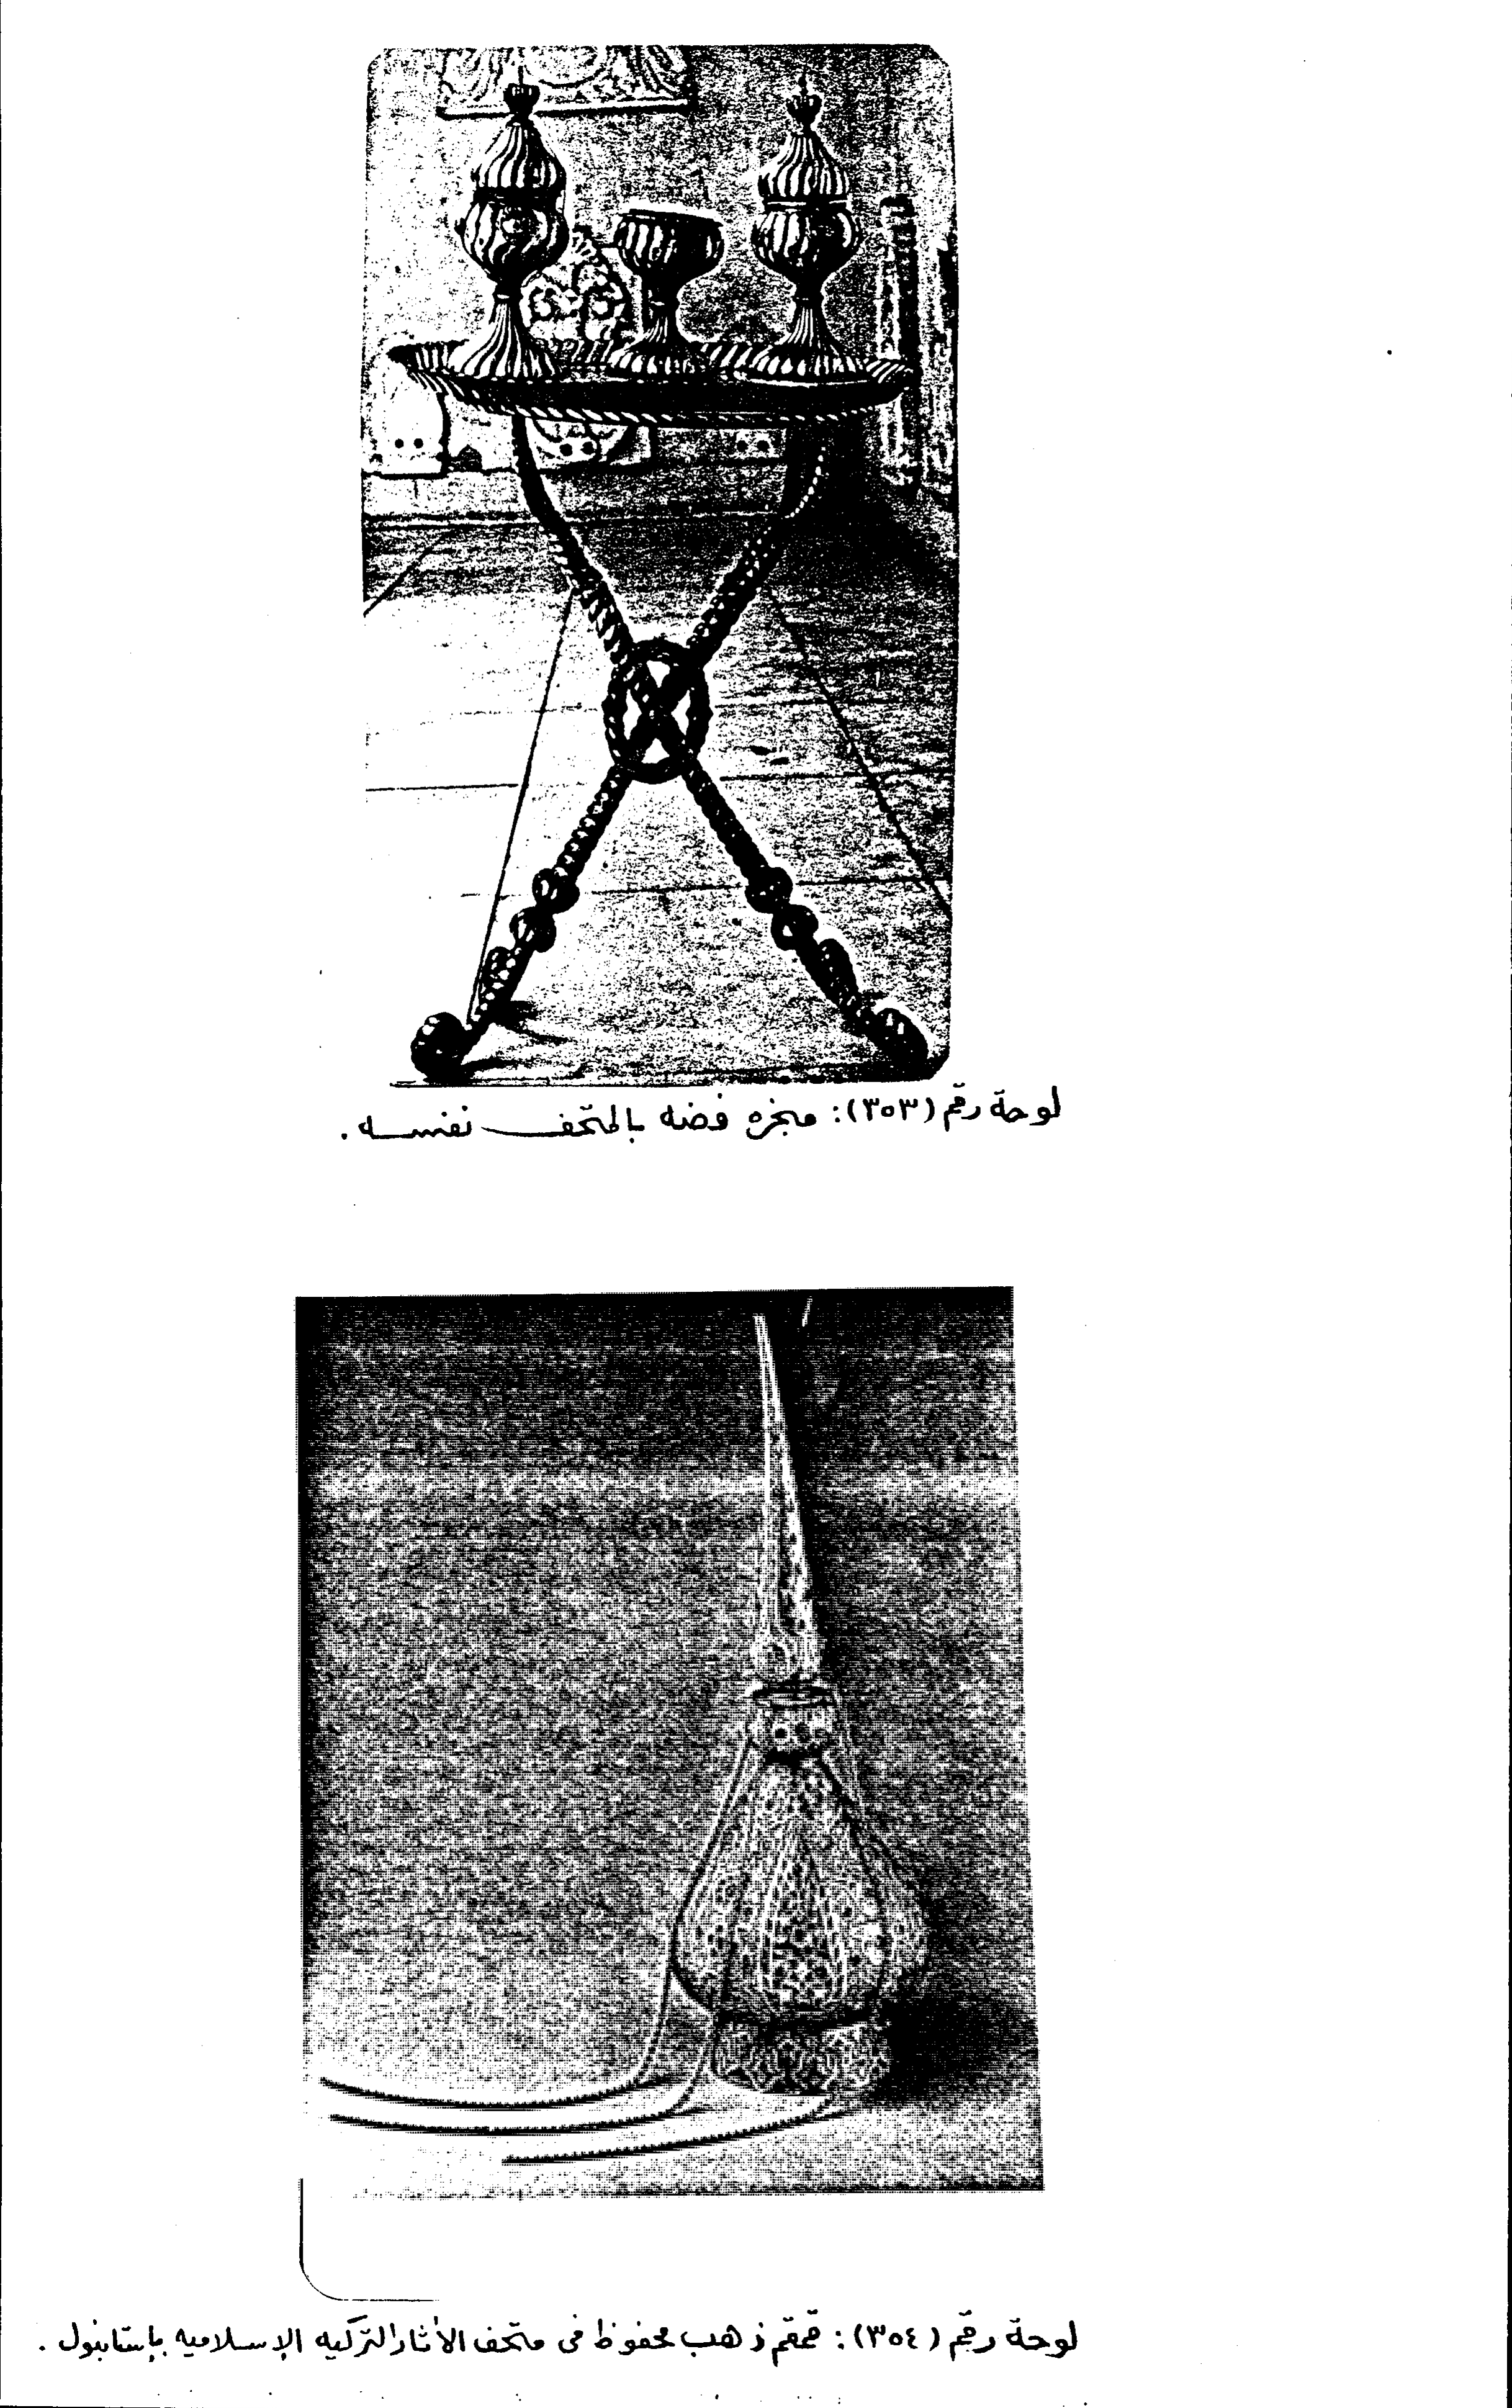 لوحة رقم (٣٥٣): مبخره فضه بالمتحف نفسه .
لوحة رقم (٣٥٤): قمقم ذهب محفوظ فى متحف الأثار التركيه الإسلاميه بإستانبول .